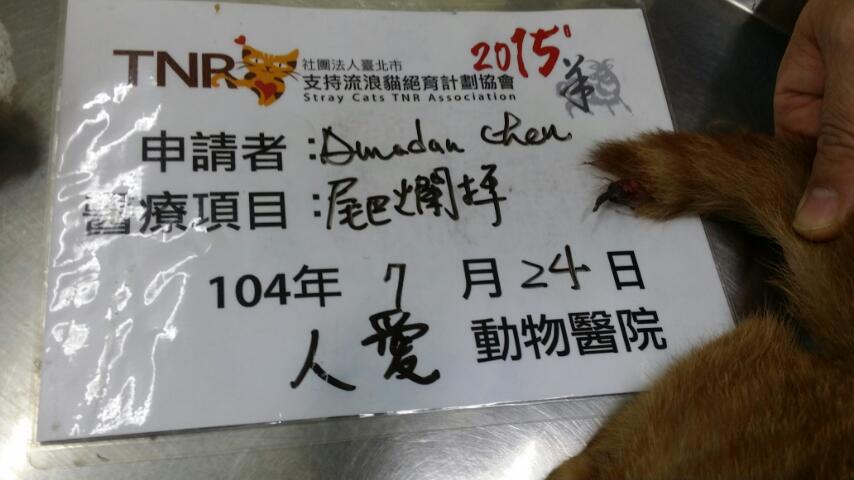 TNR 社團法人臺北市 2015 羊
支持流浪貓絕育計劃協會
Stray Cats TNR Association
申請者:Amadan Chen
醫療項目:尾巴爛掉
104年 7 月 24 日
人愛 動物醫院